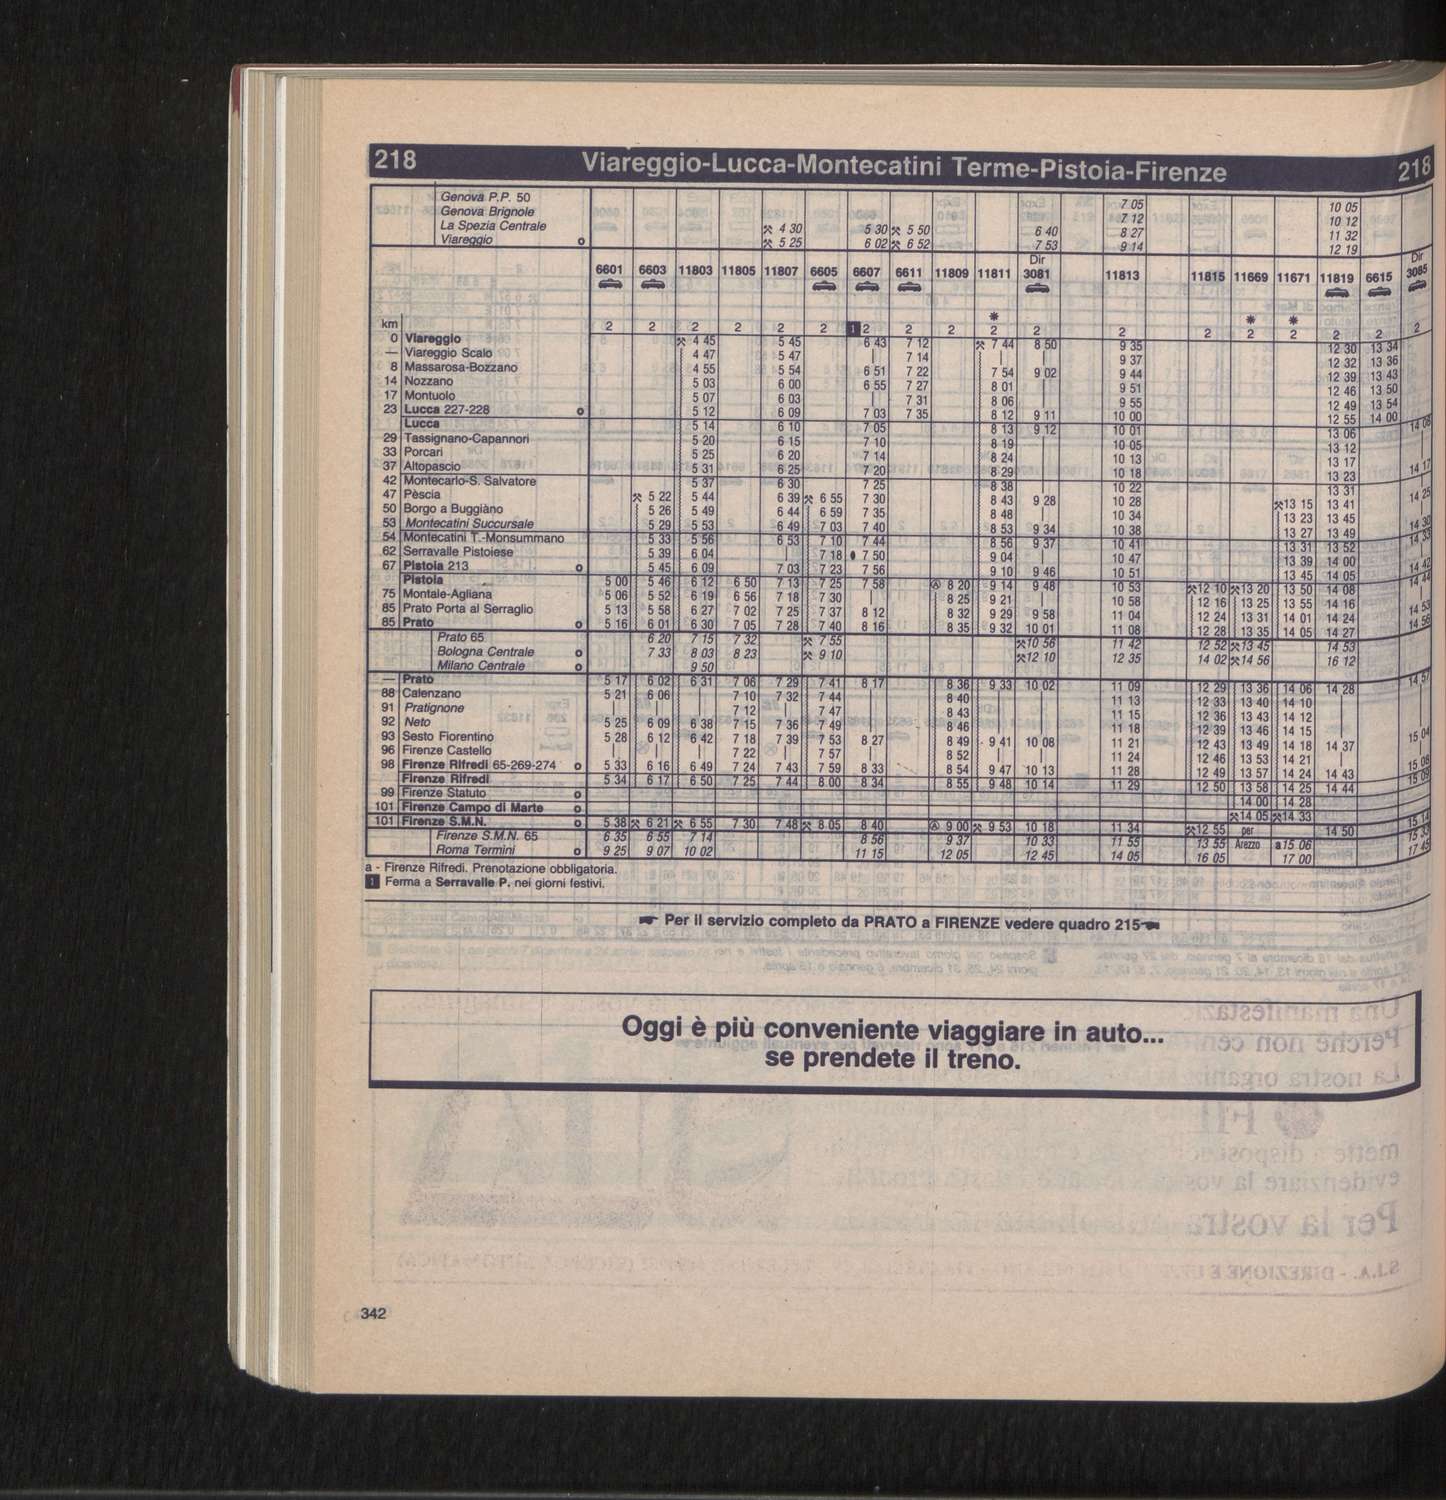 218 Viareggio-Lucca-Montecatini Terme-Pistoia-Firenze 218
Genova P.P. 50 7 05 10 05
Genova Brignole 7 12 10 12
La Spezia Centrale ⚒ 4 30 5 30 ⚒ 5 50 6 40 8 27 11 32
Viareggio o ⚒ 5 25 6 02 ⚒ 6 52 7 53 9 14 12 19
Dir Dir
6601 6603 11803 11805 11807 6605 6607 6611 11809 11811 3081 11813 11815 11669 11671 11819 6615 3085
✱ ✱ ✱
km 2 2 2 2 2 2 1 2 2 2 2 2 2 2 2 2 2 2 2
0 Viareggio ⚒ 4 45 5 45 6 43 7 12 ⚒ 7 44 8 50 9 35 12 30 13 34
— Viareggio Scalo 4 47 5 47 | 7 14 | | 9 37 12 32 13 36
8 Massarosa-Bozzano 4 55 5 54 6 51 7 22 7 54 9 02 9 44 12 39 13 43
14 Nozzano 5 03 6 00 6 55 7 27 8 01 | 9 51 12 46 13 50
17 Montuolo 5 07 6 03 | 7 31 8 06 | 9 55 12 49 13 54
23 Lucca 227-228 o 5 12 6 09 7 03 7 35 8 12 9 11 10 00 12 55 14 00
Lucca 5 14 6 10 7 05 8 13 9 12 10 01 13 06 14 08
29 Tassignano-Capannori 5 20 6 15 7 10 8 19 | 10 05 13 12 |
33 Porcari 5 25 6 20 7 14 8 24 | 10 13 13 17 |
37 Altopascio 5 31 6 25 7 20 8 29 | 10 18 13 23 14 17
42 Montecarlo-S. Salvatore 5 37 6 30 7 25 8 38 | 10 22 13 31 |
47 Pèscia ⚒ 5 22 5 44 6 39 ⚒ 6 55 7 30 8 43 9 28 10 28 ⚒13 15 13 41 14 25
50 Borgo a Buggiàno 5 26 5 49 6 44 6 59 7 35 8 48 | 10 34 13 23 13 45 |
53 Montecatini Succursale 5 29 5 53 6 49 7 03 7 40 8 53 9 34 10 38 13 27 13 49 14 30
54 Montecatini T.-Monsummano 5 33 5 56 6 53 7 10 7 44 8 56 9 37 10 41 13 31 13 52 14 33
62 Serravalle Pistoiese 5 39 6 04 | 7 18 7 50 9 04 | 10 47 13 39 14 00 |
67 Pistoia 213 o 5 45 6 09 7 03 7 23 7 56 9 10 9 46 10 51 13 45 14 05 14 42
Pistoia 5 00 5 46 6 12 6 50 7 13 7 25 7 58 Ⓐ 8 20 9 14 9 48 10 53 ⚒12 10 ⚒13 20 13 50 14 08 14 44
75 Montale-Agliana 5 06 5 52 6 19 6 56 7 18 7 30 | 8 25 9 21 | 10 58 12 16 13 25 13 55 14 16 |
85 Prato Porta al Serraglio 5 13 5 58 6 27 7 02 7 25 7 37 8 12 8 32 9 29 9 58 11 04 12 24 13 31 14 01 14 24 14 53
85 Prato o 5 16 6 01 6 30 7 05 7 28 7 40 8 16 8 35 9 32 10 01 11 08 12 28 13 35 14 05 14 27 14 56
Prato 65 6 20 7 15 7 32 ⚒ 7 55 ⚒10 56 11 42 12 52 ⚒13 45 14 53
Bologna Centrale o 7 33 8 03 8 23 ⚒ 9 10 ⚒12 10 12 35 14 02 ⚒14 56 16 12
Milano Centrale o 9 50
— Prato 5 17 6 02 6 31 7 06 7 29 7 41 8 17 8 36 9 33 10 02 11 09 12 29 13 36 14 06 14 28 14 57
88 Calenzano 5 21 6 06 | 7 10 7 32 7 44 | 8 40 | | 11 13 12 33 13 40 14 10 | |
91 Pratignone | | | 7 12 | 7 47 | 8 43 | | 11 15 12 36 13 43 14 12 | |
92 Neto 5 25 6 09 6 38 7 15 7 36 7 49 | 8 46 | | 11 18 12 39 13 46 14 15 | |
93 Sesto Fiorentino 5 28 6 12 6 42 7 18 7 39 7 53 8 27 8 49 9 41 10 08 11 21 12 43 13 49 14 18 14 37 15 04
96 Firenze Castello | | | 7 22 | 7 57 | 8 52 | | 11 24 12 46 13 53 14 21 | |
98 Firenze Rifredi 65-269-274 o 5 33 6 16 6 49 7 24 7 43 7 59 8 33 8 54 9 47 10 13 11 28 12 49 13 57 14 24 14 43 15 08
Firenze Rifredi 5 34 6 17 6 50 7 25 7 44 8 00 8 34 8 55 9 48 10 14 11 29 12 50 13 58 14 25 14 44 15 09
99 Firenze Statuto o 14 00 14 28
101 Firenze Campo di Marte o ⚒14 05 ⚒14 33
101 Firenze S.M.N. o 5 38 ⚒ 6 21 ⚒ 6 55 7 30 7 48 ⚒ 8 05 8 40 Ⓐ 9 00 ⚒ 9 53 10 18 11 34 ⚒12 55 per 14 50 15 14
Firenze S.M.N. 65 6 35 6 55 7 14 8 56 9 37 10 33 11 55 13 55 Arezzo a 15 06 15 33
Roma Termini o 9 25 9 07 10 02 11 15 12 05 12 45 14 05 16 05 17 00 17 45
a - Firenze Rifredi. Prenotazione obbligatoria.
1 Ferma a Serravalle P. nei giorni festivi.
☛ Per il servizio completo da PRATO a FIRENZE vedere quadro 215 ☚
Oggi è più conveniente viaggiare in auto...
se prendete il treno.
342